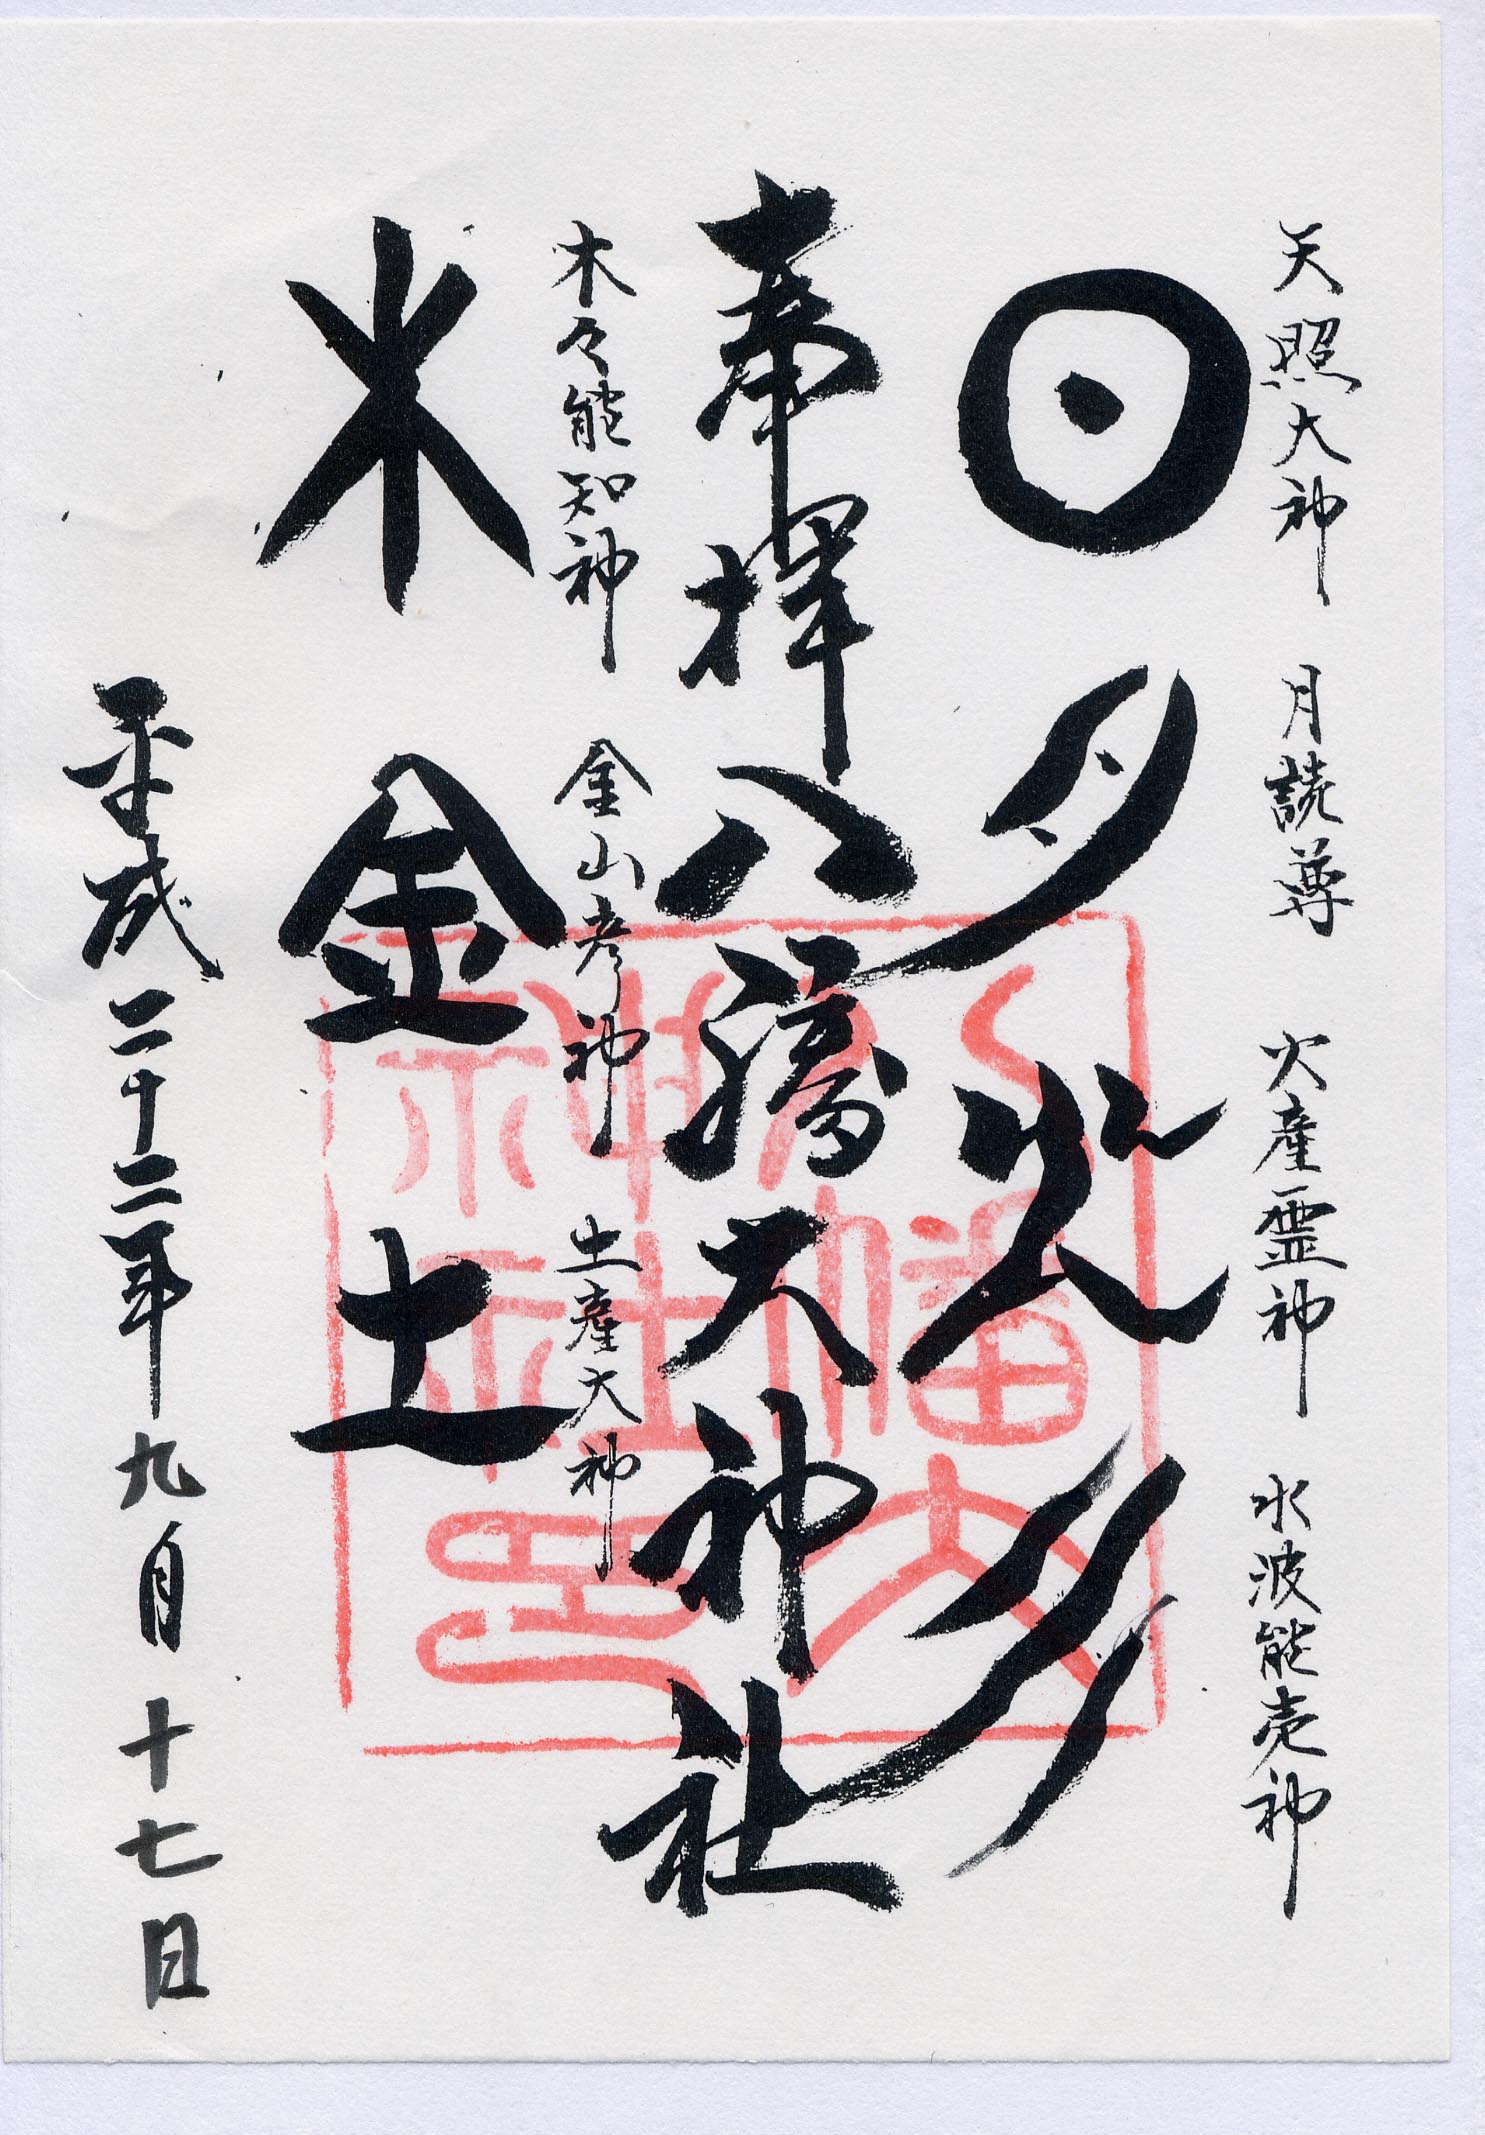 天照大神 月読尊 火産霊神 水波能売神
日月火水
奉拝八幡大神社
木々能知神 金山彦神 土産大神
木金土
平成二十二年九月十七日
八幡大
神社印